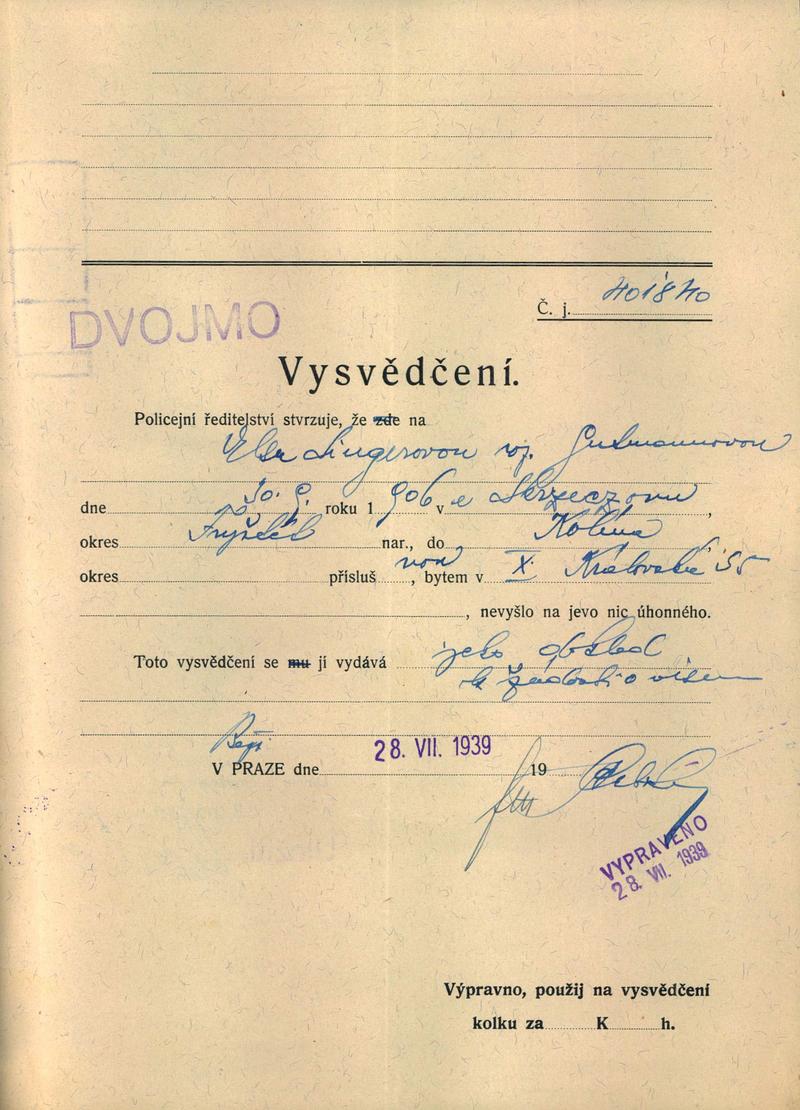 Č. j. 40184o
DVOJMO
Vysvědčení.
Policejní ředitelství stvrzuje, že zde na
Elsu Singerovou roz. Gutmannovou
dne 30. 9. roku 1906 v Skrzeczonu,
okres Fryštát nar., do Kolína
okres přísluš nou, bytem v X. Královská 55
, nevyšlo na jevo nic úhonného.
Toto vysvědčení se mu jí vydává jako doklad
k žádosti o visum
V PRAZE dne 28. VII. 1939 19
VYPRAVENO
28. VII. 1939
Výpravno, použij na vysvědčení
kolku za K h.